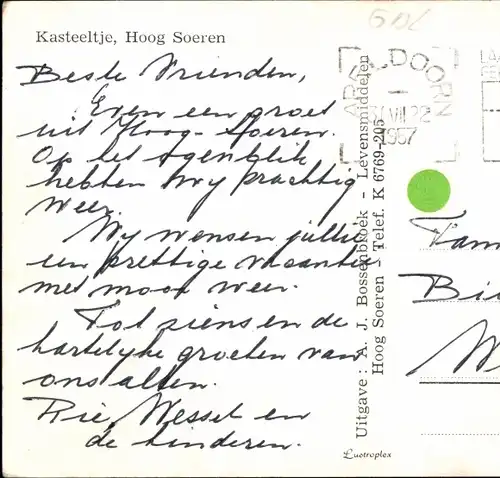 Kasteeltje, Hoog Soeren
Beste Vrienden,
Even een groet
uit Hoog-Soeren.
Op het ogenblik
hebben wy prachtig
weer.
Wy wensen jullie
een prettige vacantie
met mooi weer.
Tot ziens en de
hartelyke groeten van
ons allen.
Rie, Wessel en
de kinderen.
Uitgave: A. J. Bossenbroek - Levensmiddelen
Hoog Soeren - Telef. K 6769-205
APELDOORN
1957
Fam
Bi
W
Luxtroplex